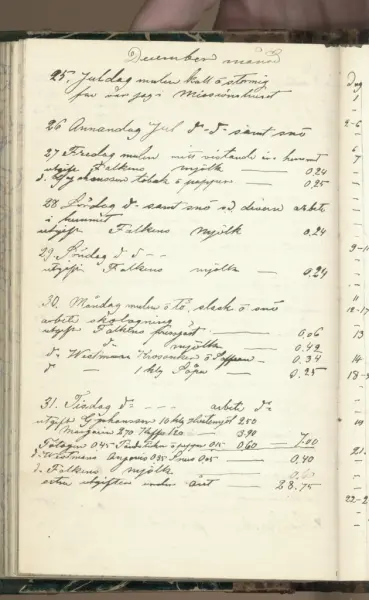 December månad
25. Juldag mulen kall o stormig
for var jag i Missionshuset
26 Annandag Jul d - d - samt snö
27 Fredag mulen mitt vistande i hemmet
utgift Falkens mjölk — 0,24
d. Gyhanssons tobak o peppar — 0,25
28 Lördag d - samt snö o diverse arbete
i hemmet
utgift Falkens mjölk 0,24
29. Söndag d d - -
utgift Falkens mjölk — 0,24
30. Måndag mulen o tö, slask o snö
arbete skolagning
utgift Falkens — 0,06
d. mjölk — 0,42
d. Westmans o Saffran - 0,34
d — 1 klg Såpa — 0.25
31. Tisdag d - - - arbete d-
utgift Gyhansson 10 klg Hvetemjöl 2,50
Margarin 2,70 Kaffe 1.20 — 3,90
0,45 o peppar 0,15 0,60 — 7.00
d. Westmans 0,35 0,05 — 0,40
d. Falkens mjölk
extra utgifter under året — 28.75
Dag
1
2-6
6
7
9-11
11
12-17
13
14
18-
19
21.
22-2